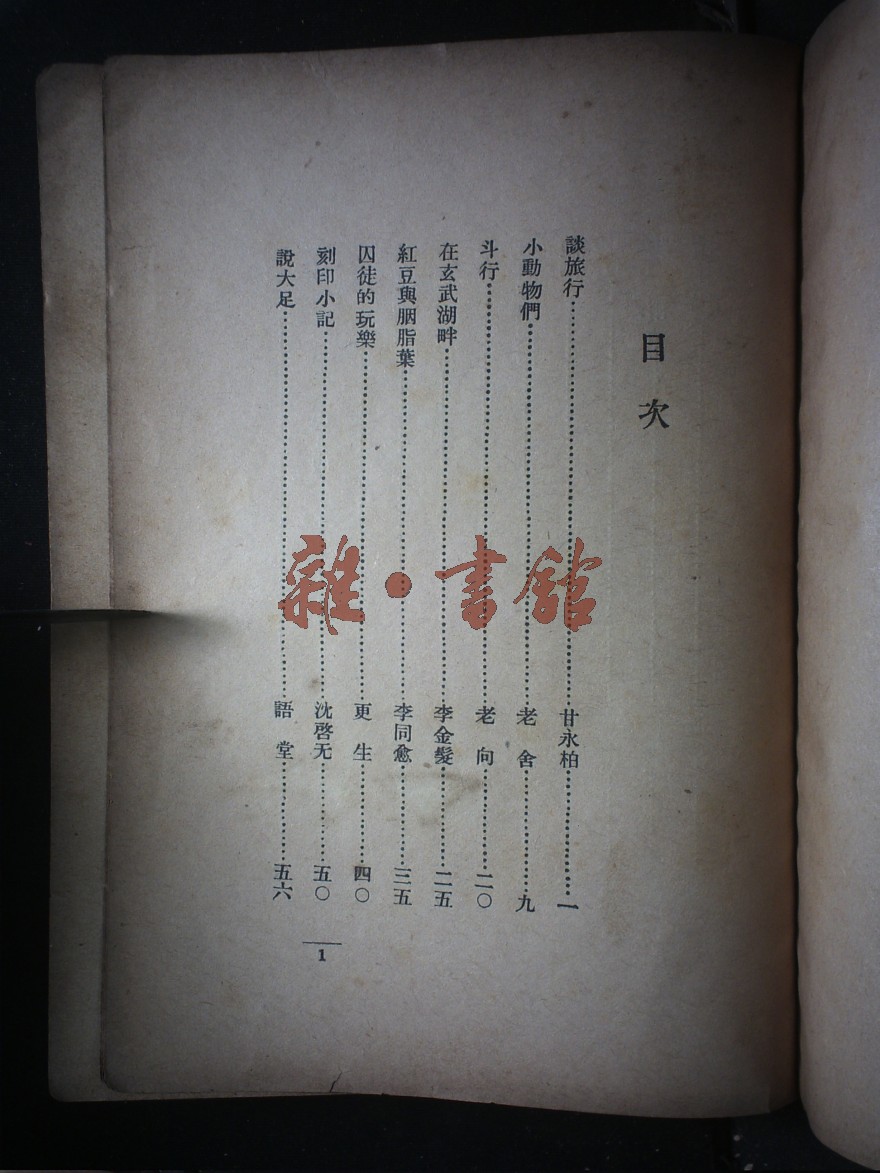 目次
談旅行……甘永柏……一
小動物們……老舍……九
斗行……老向……二〇
在玄武湖畔……李金髮……二五
紅豆與胭脂葉……李同愈……三五
囚徒的玩樂……更生……四〇
刻印小記……沈啓无……五〇
說大足……語堂……五六
1
雜·書館